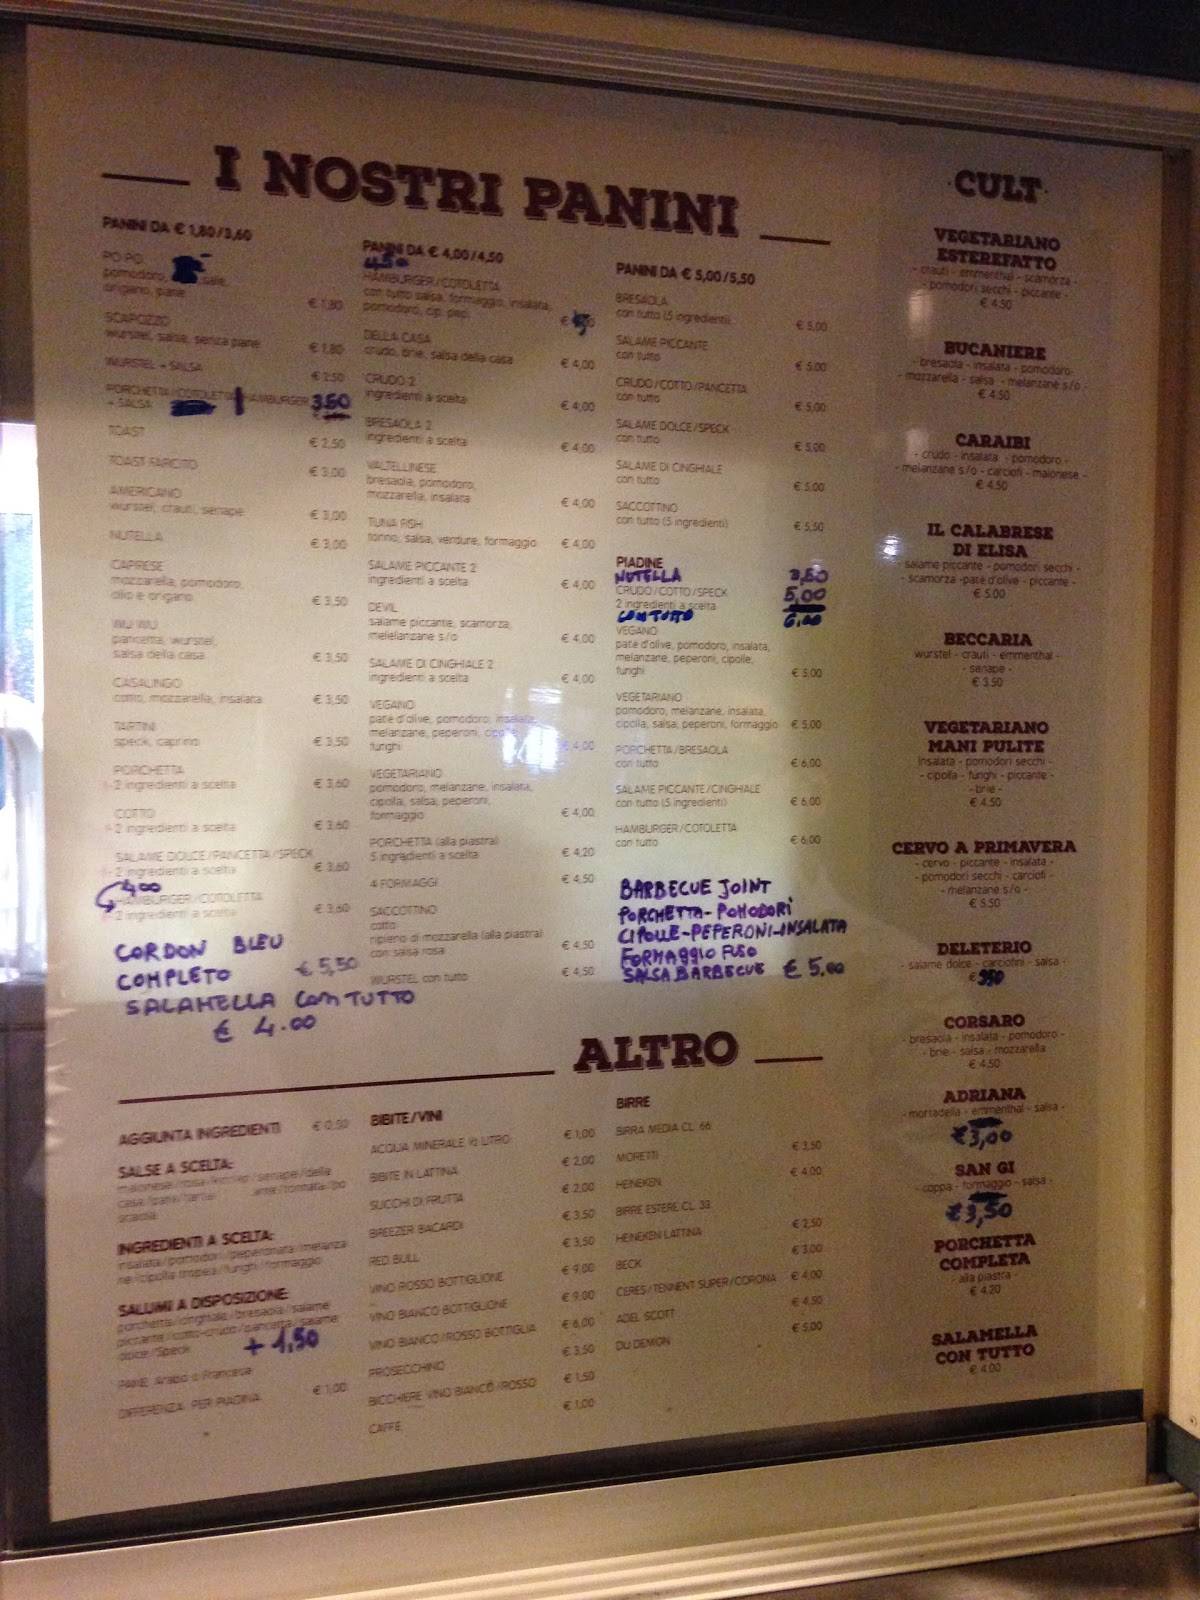 I NOSTRI PANINI
PANINI DA € 1,80/3,60
PO PO
pomodoro, sale,
origano, pane
€ 1,80
SCAPOZZO
wurstel, salsa, senza pane
€ 1,80
WURSTEL + SALSA
€ 2,50
PORCHETTA/COTOLETTA HAMBURGER 3,50
+ SALSA
TOAST
€ 2,50
TOAST FARCITO
€ 3,00
AMERICANO
wurstel, crauti, senape
€ 3,00
NUTELLA
€ 3,00
CAPRESE
mozzarella, pomodoro,
olio e origano
€ 3,50
WU WU
pancetta, wurstel,
salsa della casa
€ 3,50
CASALINGO
cotto, mozzarella, insalata
€ 3,50
TARTINI
speck, caprino
€ 3,50
PORCHETTA
1-2 ingredienti a scelta
€ 3,60
COTTO
1-2 ingredienti a scelta
€ 3,60
SALAME DOLCE/PANCETTA/SPECK
1-2 ingredienti a scelta
€ 3,60
4,00
HAMBURGER/COTOLETTA
2 ingredienti a scelta
€ 3,60
CORDON BLEU
COMPLETO € 5,50
SALAMELLA CON TUTTO
€ 4.00
PANINI DA € 4,00/4,50
4,50
HAMBURGER/COTOLETTA
con tutto salsa, formaggio, insalata,
pomodoro, cip. pep.
DELLA CASA
crudo, brie, salsa della casa
€ 4,00
CRUDO 2
ingredienti a scelta
€ 4,00
BRESAOLA 2
ingredienti a scelta
€ 4,00
VALTELLINESE
bresaola, pomodoro,
mozzarella, insalata
€ 4,00
TUNA FISH
tonno, salsa, verdure, formaggio
€ 4,00
SALAME PICCANTE 2
ingredienti a scelta
€ 4,00
DEVIL
salame piccante, scamorza,
melelanzane s/o
€ 4,00
SALAME DI CINGHIALE 2
ingredienti a scelta
€ 4,00
VEGANO
patè d'olive, pomodoro, insalata,
melanzane, peperoni, cipolle,
funghi
€ 4,00
VEGETARIANO
pomodoro, melanzane, insalata,
cipolla, salsa, peperoni,
formaggio
€ 4,00
PORCHETTA (alla piastra)
5 ingredienti a scelta
€ 4,20
4 FORMAGGI
€ 4,50
SACCOTTINO
cotto
ripieno di mozzarella (alla piastra)
con salsa rosa
€ 4,50
WURSTEL con tutto
€ 4,50
PANINI DA € 5,00/5,50
BRESAOLA
con tutto (5 ingredienti)
€ 5,00
SALAME PICCANTE
con tutto
€ 5,00
CRUDO/COTTO/PANCETTA
con tutto
€ 5,00
SALAME DOLCE/SPECK
con tutto
€ 5,00
SALAME DI CINGHIALE
con tutto
€ 5,00
SACCOTTINO
con tutto (5 ingredienti)
€ 5,50
PIADINE
NUTELLA 3,50
CRUDO/COTTO/SPECK 5,00
2 ingredienti a scelta
CON TUTTO 6,00
VEGANO
patè d'olive, pomodoro, insalata,
melanzane, peperoni, cipolle,
funghi
€ 5,00
VEGETARIANO
pomodoro, melanzane, insalata,
cipolla, salsa, peperoni, formaggio
€ 5,00
PORCHETTA/BRESAOLA
con tutto
€ 6,00
SALAME PICCANTE/CINGHIALE
con tutto (5 ingredienti)
€ 6,00
HAMBURGER/COTOLETTA
con tutto
€ 6,00
BARBECUE JOINT
PORCHETTA-POMODORI
CIPOLLE-PEPERONI-INSALATA
FORMAGGIO FUSO
SALSA BARBECUE € 5,00
CULT
VEGETARIANO
ESTEREFATTO
- crauti - emmenthal - scamorza -
- pomodori secchi - piccante -
€ 4,50
BUCANIERE
- bresaola - insalata - pomodoro-
- mozzarella - salsa - melanzane s/o -
€ 4,50
CARAIBI
- crudo - insalata - pomodoro -
- melanzane s/o - carciofi - maionese -
€ 4,50
IL CALABRESE
DI ELISA
salame piccante - pomodori secchi -
- scamorza -patè d'olive - piccante -
€ 5,00
BECCARIA
wurstel - crauti - emmenthal -
- senape -
€ 3,50
VEGETARIANO
MANI PULITE
insalata - pomodori secchi -
- cipolla - funghi - piccante -
- brie -
€ 4,50
CERVO A PRIMAVERA
- cervo - piccante - insalata -
- pomodori secchi - carciofi -
- melanzane s/o -
€ 5,50
DELETERIO
- salame dolce - carciofini - salsa -
€ 3,50
CORSARO
- bresaola - insalata - pomodoro -
- brie - salsa - mozzarella
€ 4,50
ADRIANA
- mortadella - emmenthal - salsa -
€3,00
SAN GI
- coppa - formaggio - salsa -
€3,50
PORCHETTA
COMPLETA
- alla piastra -
€ 4,20
SALAMELLA
CON TUTTO
€ 4,00
ALTRO
AGGIUNTA INGREDIENTI € 0,50
SALSE A SCELTA:
maionese/rosa/ketchup/senape/della
INGREDIENTI A SCELTA:
insalata/pomodori/peperonata/melanza
ne/cipolla tropea/funghi/formaggio
SALUMI A DISPOSIZIONE:
porchetta/cinghiale/bresaola/salame
piccante/cotto-crudo/pancetta/salame
dolce/Speck
+ 1,50
PANE: Arabo o Francese
DIFFERENZA PER PIADINA € 1,00
BIBITE/VINI
ACQUA MINERALE ½ LITRO
€ 1,00
BIBITE IN LATTINA
€ 2,00
SUCCHI DI FRUTTA
€ 2,00
BREEZER BACARDI
€ 3,50
RED BULL
€ 3,50
VINO ROSSO BOTTIGLIONE
€ 9,00
VINO BIANCO BOTTIGLIONE
€ 9,00
VINO BIANCO/ROSSO BOTTIGLIA
€ 6,00
PROSECCHINO
€ 3,50
BICCHIERE VINO BIANCO/ROSSO
€ 1,50
CAFFE'
€ 1,00
BIRRE
BIRRA MEDIA CL. 66
MORETTI
€ 3,50
HENEKEN
€ 4,00
BIRRE ESTERE CL. 33
HENEKEN LATTINA
€ 2,50
BECK
€ 3,00
CERES/TENNENT SUPER/CORONA
€ 4,00
ADEL SCOTT
€ 4,50
DU DEMON
€ 5,00